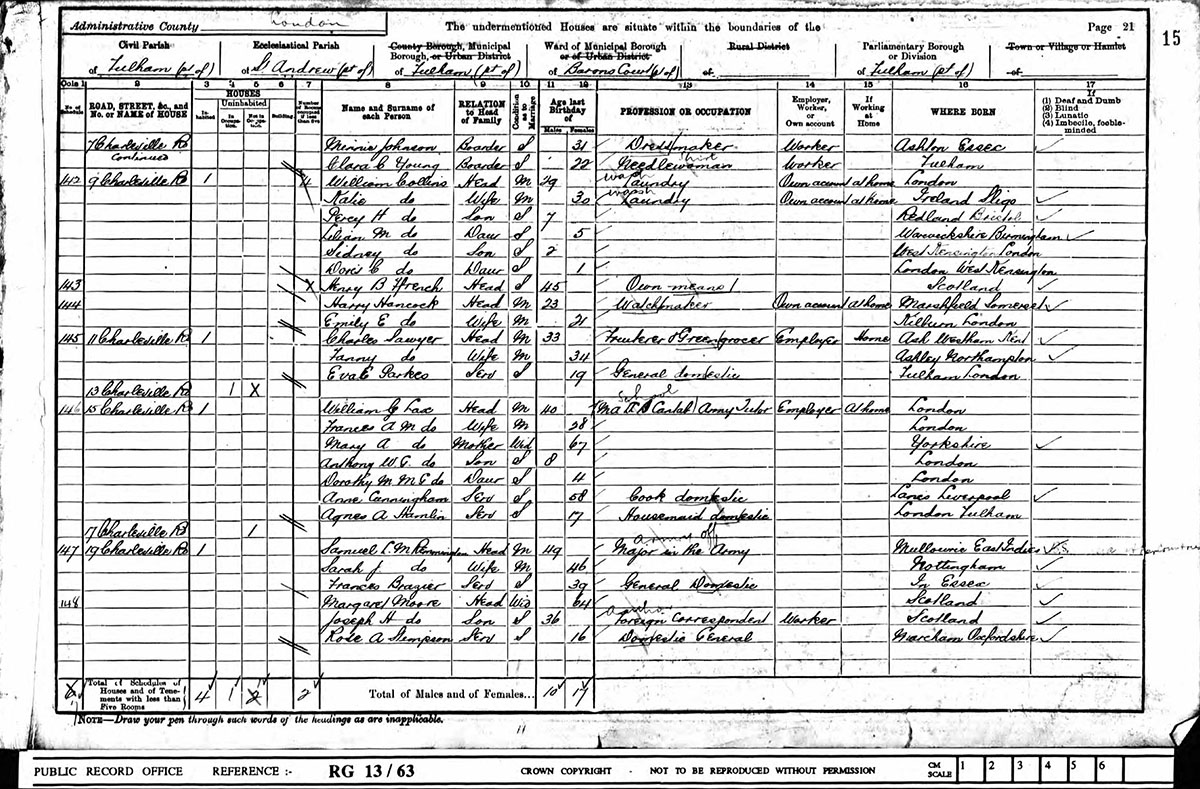 Administrative County London
The undermentioned Houses are situate within the boundaries of the
Page 21
15
Civil Parish
of Fulham (pt of)
Ecclesiastical Parish
of St Andrew (pt of)
County Borough, Municipal Borough, or Urban District
of Fulham (pt of)
Ward of Municipal Borough or of Urban District
of Barons Court (pt of)
Rural District
of
Parliamentary Borough or Division
of Fulham (pt of)
Town or Village or Hamlet
of
Cols 1 2 3 4 5 6 7 8 9 10 11 12 13 14 15 16 17
No. of Schedule
ROAD, STREET, &c., and No. or NAME of HOUSE
HOUSES
Inhabited
Uninhabited
In Occupation
Not in Occupation
Building
Name and Surname of each Person
RELATION to Head of Family
Condition as to Marriage
Age last Birthday of
Males Females
PROFESSION OR OCCUPATION
Employer, Worker, or Own account
If Working at Home
WHERE BORN
If (1) Deaf and Dumb (2) Blind (3) Lunatic (4) Imbecile, feeble-minded
7 Charleville Rd continued Minnie Johnson Boarder S 31 Dressmaker Worker Essex
Clara C Young Boarder S 22 Shirt Needlewoman Worker Fulham
142 9 Charleville Rd 1 4 William Collins Head M 29 Laundry Own account at home London
Katie do Wife M 30 Laundry Own account at home Ireland Sligo
Percy H do Son S 7 Redland Bristol
Lilian M do Daur S 5 Warwickshire Birmingham
Sidney do Son S 2 West Kensington London
Doris C do Daur S 1 London West Kensington
143 Henry B Head S 45 Own means Scotland
144 Harry Hancock Head M 23 Watchmaker Own account at home Marshfield Somerset
Emily E do Wife M 21 Kilburn London
145 11 Charleville Rd 1 Charles Sawyer Head M 33 Fruiterer & Greengrocer Employer Home Ash Kent
Fanny do Wife M 34 Ashley Northampton
Eva E Parkes Serv S 19 General domestic Fulham London
13 Charleville Rd 1 X
146 15 Charleville Rd 1 William G Lax Head M 40 School Cantab Army Tutor Employer At home London
Frances A M do Wife M 28 London
Mary A do Mother Wid 67 Yorkshire
Anthony W G. do Son S 8 London
Dorothy M M G do Daur S 4 London
Anne Cunningham Serv S 58 Cook domestic Lancs Liverpool
Agnes A Hamlin Serv S 17 Housemaid domestic London Fulham
17 Charleville Rd 1
147 19 Charleville Rd 1 Samuel Head M 49 Army Off Major in the Army East Indies
Sarah J. do Wife M 46 Nottingham
Frances Brazier Serv S 39 General Domestic In Essex
148 Margaret Moore Head Wid 64 Scotland
Joseph H do Son S 36 Foreign Correspondent Worker Scotland
Rose A Stempson Serv S 16 Domestic General Oxfordshire
Total of Schedules of Houses and of Tenements with less than Five Rooms
4 1 2 2
Total of Males and of Females... 10 17
NOTE—Draw your pen through such words of the headings as are inapplicable.
11
PUBLIC RECORD OFFICE REFERENCE :- RG 13/63 CROWN COPYRIGHT - NOT TO BE REPRODUCED WITHOUT PERMISSION CM SCALE 1 2 3 4 5 6